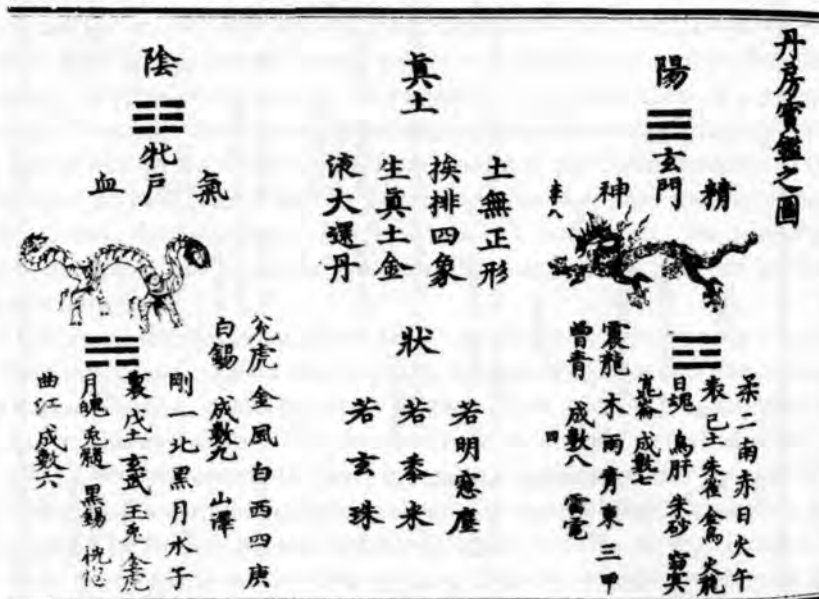 丹房寶鑑之圖
陽
玄門
精
神
柔二南赤日火午
表己土朱雀金烏火龍
日魂烏肝朱砂
崑崙成數七
震龍木雨青東三甲
曾青成數八雷電
四
真土
土無正形
挨排四象
生真土金
液大還丹
狀
若明窓塵
若黍米
若玄珠
陰
牝戶
氣
血
兌虎金風白西四庚
白錫成數九山澤
剛一北黑月水子
裏戊土玄武玉兎金虎
月魄兎髓黑錫
曲江成數六